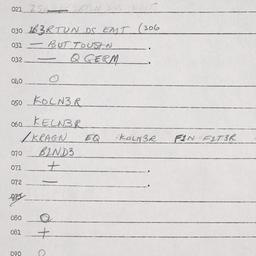 021
030 DS EMT (306
031 — BUT TOUSEN .
032 — Q GERM .
040 O
050 KOLN3R
060 KELN3R
/KRAGN EQ KOLN3R FIN FIT3R
070 BIND3
071 + .
072 — .
080 O
081 +
090 O